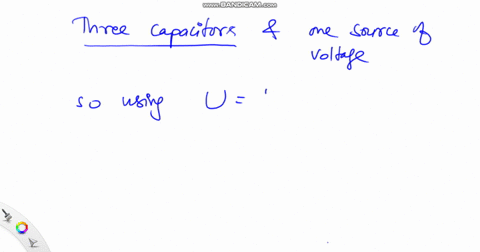 WWW.BANDICAM.COM
Three capacitors & one source of
voltage
so using U = '